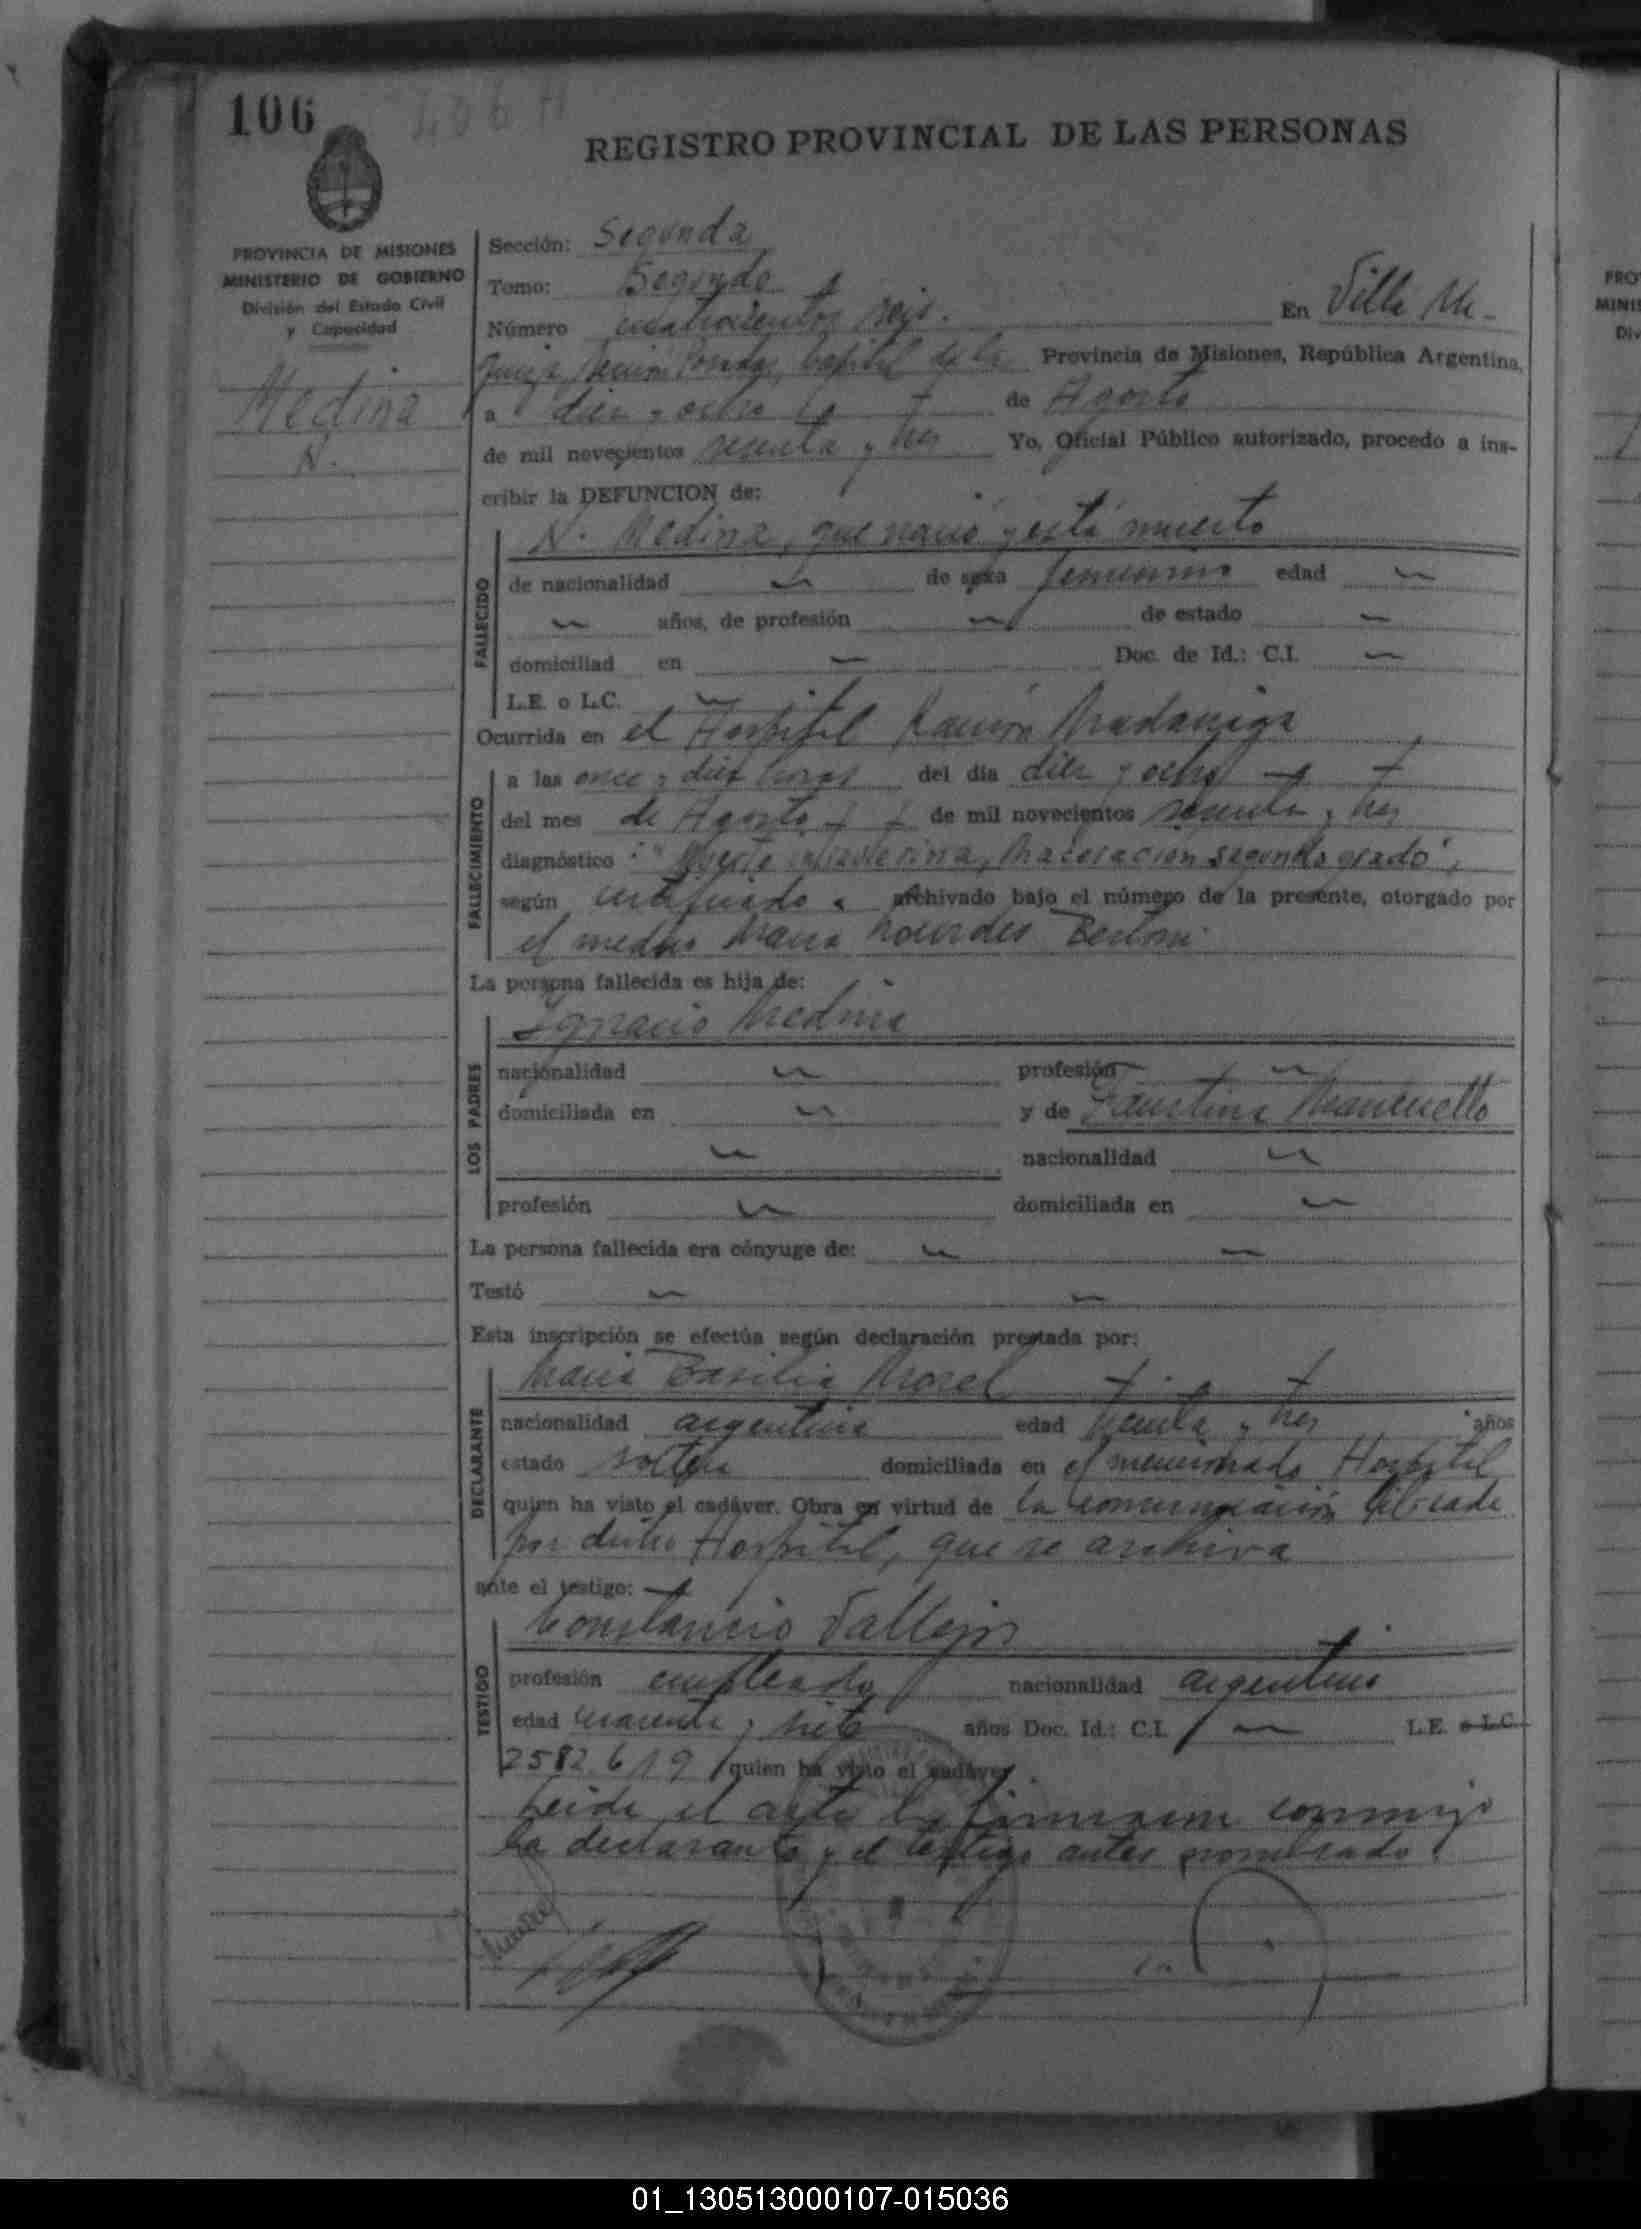 106
406 H
REGISTRO PROVINCIAL DE LAS PERSONAS
PROVINCIA DE MISIONES
MINISTERIO DE GOBIERNO
División del Estado Civil
y Capacidad
Medina
N.
Sección: Segunda
Tomo: Segundo
Número cuatrocientos seis. En Villa Ur-
quiza, Capital de la Provincia de Misiones, República Argentina,
a diez y ocho de Agosto
de mil novecientos sesenta y tres Yo, Oficial Público autorizado, procedo a ins-
cribir la DEFUNCION de:
N. Medina, que nació y está muerto
FALLECIDO
de nacionalidad de sexo femenino edad
años, de profesión de estado
domiciliad en Doc. de Id.: C.I.
L.E. o L.C.
Ocurrida en el Hospital Ramón Madariaga
FALLECIMIENTO
a las once y diez horas del día diez y ocho
del mes de Agosto de mil novecientos sesenta y tres
diagnóstico: "Muerte intrauterina, Maceración segundo grado",
según certificado archivado bajo el número de la presente, otorgado por
el medico Maria Lourdes Bertoni
La persona fallecida es hija de:
LOS PADRES
Ignacio Medina
nacionalidad profesión
domiciliada en y de Faustina Mancuello
nacionalidad
profesión domiciliada en
La persona fallecida era cónyuge de:
Testó
Esta inscripción se efectúa según declaración prestada por:
DECLARANTE
Maria Basilia Morel
nacionalidad argentina edad treinta y tres años
estado soltera domiciliada en el mencionado Hospital
quien ha visto el cadáver. Obra en virtud de la comunicación librada
por dicho Hospital, que se archiva
ante el testigo:
TESTIGO
Constancio Vallejos
profesión empleado nacionalidad argentino
edad cuarenta y siete años Doc. Id.: C.I. L.E. o L.C.
2582.619 quien ha visto el cadáver.
Leida el acta la firmaron conmigo
la declarante y el testigo antes nombrado.
PRO
MINIS
Div
01_130513000107-015036